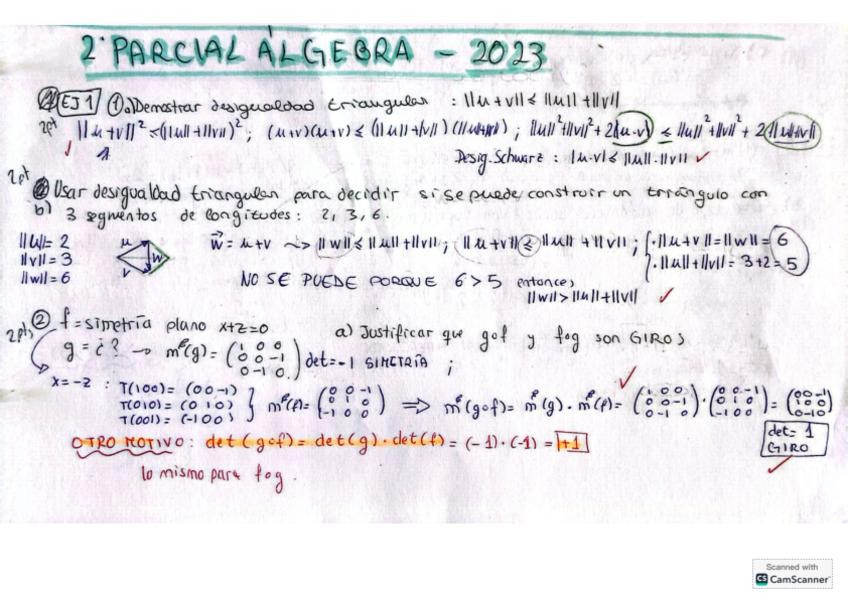 2º PARCIAL ÁLGEBRA - 2023
EJ 1 ① a) Demostrar desigualdad triangular : ||u+v|| ≤ ||u|| + ||v||
2pt ||u+v||² ≤ (||u||+||v||)² ; (u+v)(u+v) ≤ (||u||+||v||)(||u||+||v||) ; ||u||²+||v||²+2(u·v) ≤ ||u||²+||v||²+2||u||·||v||
Desig. Schwarz : |u·v| ≤ ||u||·||v|| ✓
2pt
b) Usar desigualdad triangular para decidir si se puede construir un triángulo con
3 segmentos de longitudes : 2, 3, 6.
||u|| = 2
||v|| = 3
||w|| = 6
u
v
w
w = u+v ~> ||w|| ≤ ||u||+||v|| ; ||u+v|| ≤ ||u||+||v|| ;
· ||u+v|| = ||w|| = 6
· ||u||+||v|| = 3+2 = 5
NO SE PUEDE PORQUE 6 > 5 entonces
||w|| > ||u||+||v|| ✓
2pts ② f = simetría plano x+z=0 a) Justificar que gof y fog son GIROS
g = ¿? → mᴮ(g) = (1 0 0 / 0 0 -1 / 0 -1 0) det = -1 SIMETRÍA ;
x = -z : T(100) = (0 0 -1)
T(010) = (0 1 0)
T(001) = (-1 0 0)
mᴮ(f) = (0 0 -1 / 0 1 0 / -1 0 0) ⇒ mᴮ(gof) = mᴮ(g) · mᴮ(f) = (1 0 0 / 0 0 -1 / 0 -1 0) · (0 0 -1 / 0 1 0 / -1 0 0) = (0 0 -1 / 1 0 0 / 0 -1 0)
det = 1
GIRO
OTRO MOTIVO : det(gof) = det(g) · det(f) = (-1) · (-1) = +1
lo mismo para fog.
Scanned with
CS CamScanner